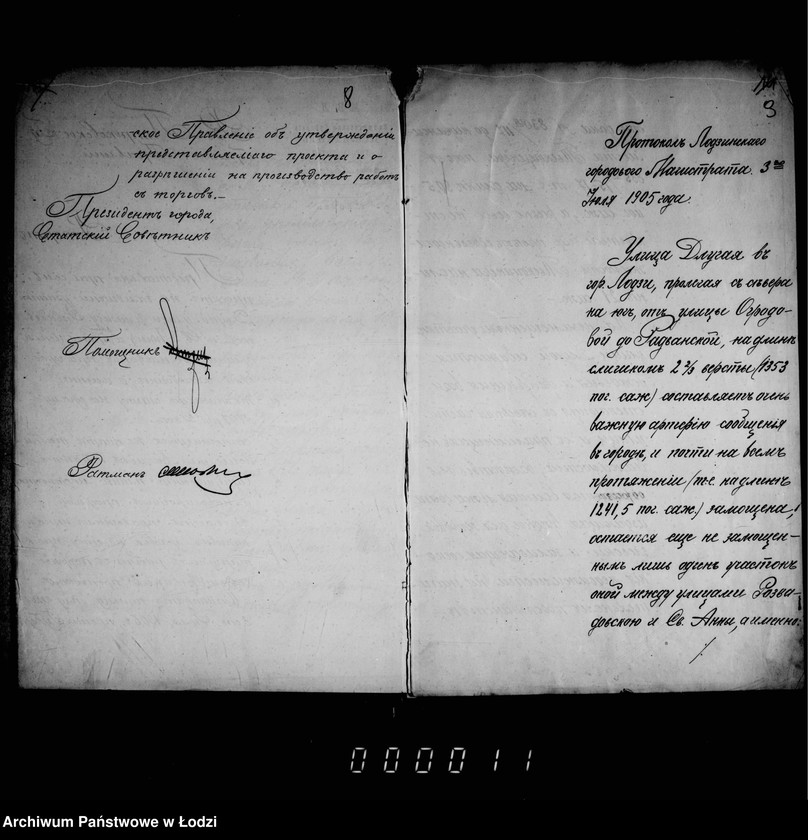 8
ское Правленіе объ утвержденіи
представляемаго проекта и о
разрѣшеніи на производство работъ
съ торговъ.—
Президентъ города,
Статскій Совѣтникъ
Помощникъ
Ратманъ
9
Протоколъ Лодзинскаго
городового Магистрата. 3го
Іюля 1905 года.
Улица Длугая въ
гор. Лодзи, пролегая съ сѣвера
на югъ, отъ улицы Огродо-
вой до Гадванской, на длинѣ
слишкомъ 2 2/3 версты (1353
пог. саж.) составляетъ очень
важную артерію сообщенія
въ городѣ, и почти на всемъ
протяженіи (т.е. на длинѣ
1241,5 пог. саж.) замощена,
остается еще не замощен-
нымъ лишь одинъ участокъ
оной между улицами Розва-
довскою и Св. Анны, а именно:
000011
Archiwum Państwowe w Łodzi